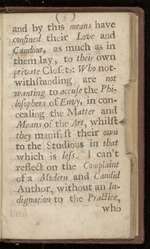 ( 5 )
and by this means have
confined their Love and
Candour, as much as in
them lay, to their own
private Closets: Who not-
withstanding are not
wanting to accuse the Phi-
losophers of Envy, in con-
cealing the Matter and
Means of the Art, whilst
they manifest their own
to the Studious in that
which is less. I can't
reflect on the Complaint
of a Modern and Candid
Author, without an In-
dignation to the Practice,
who